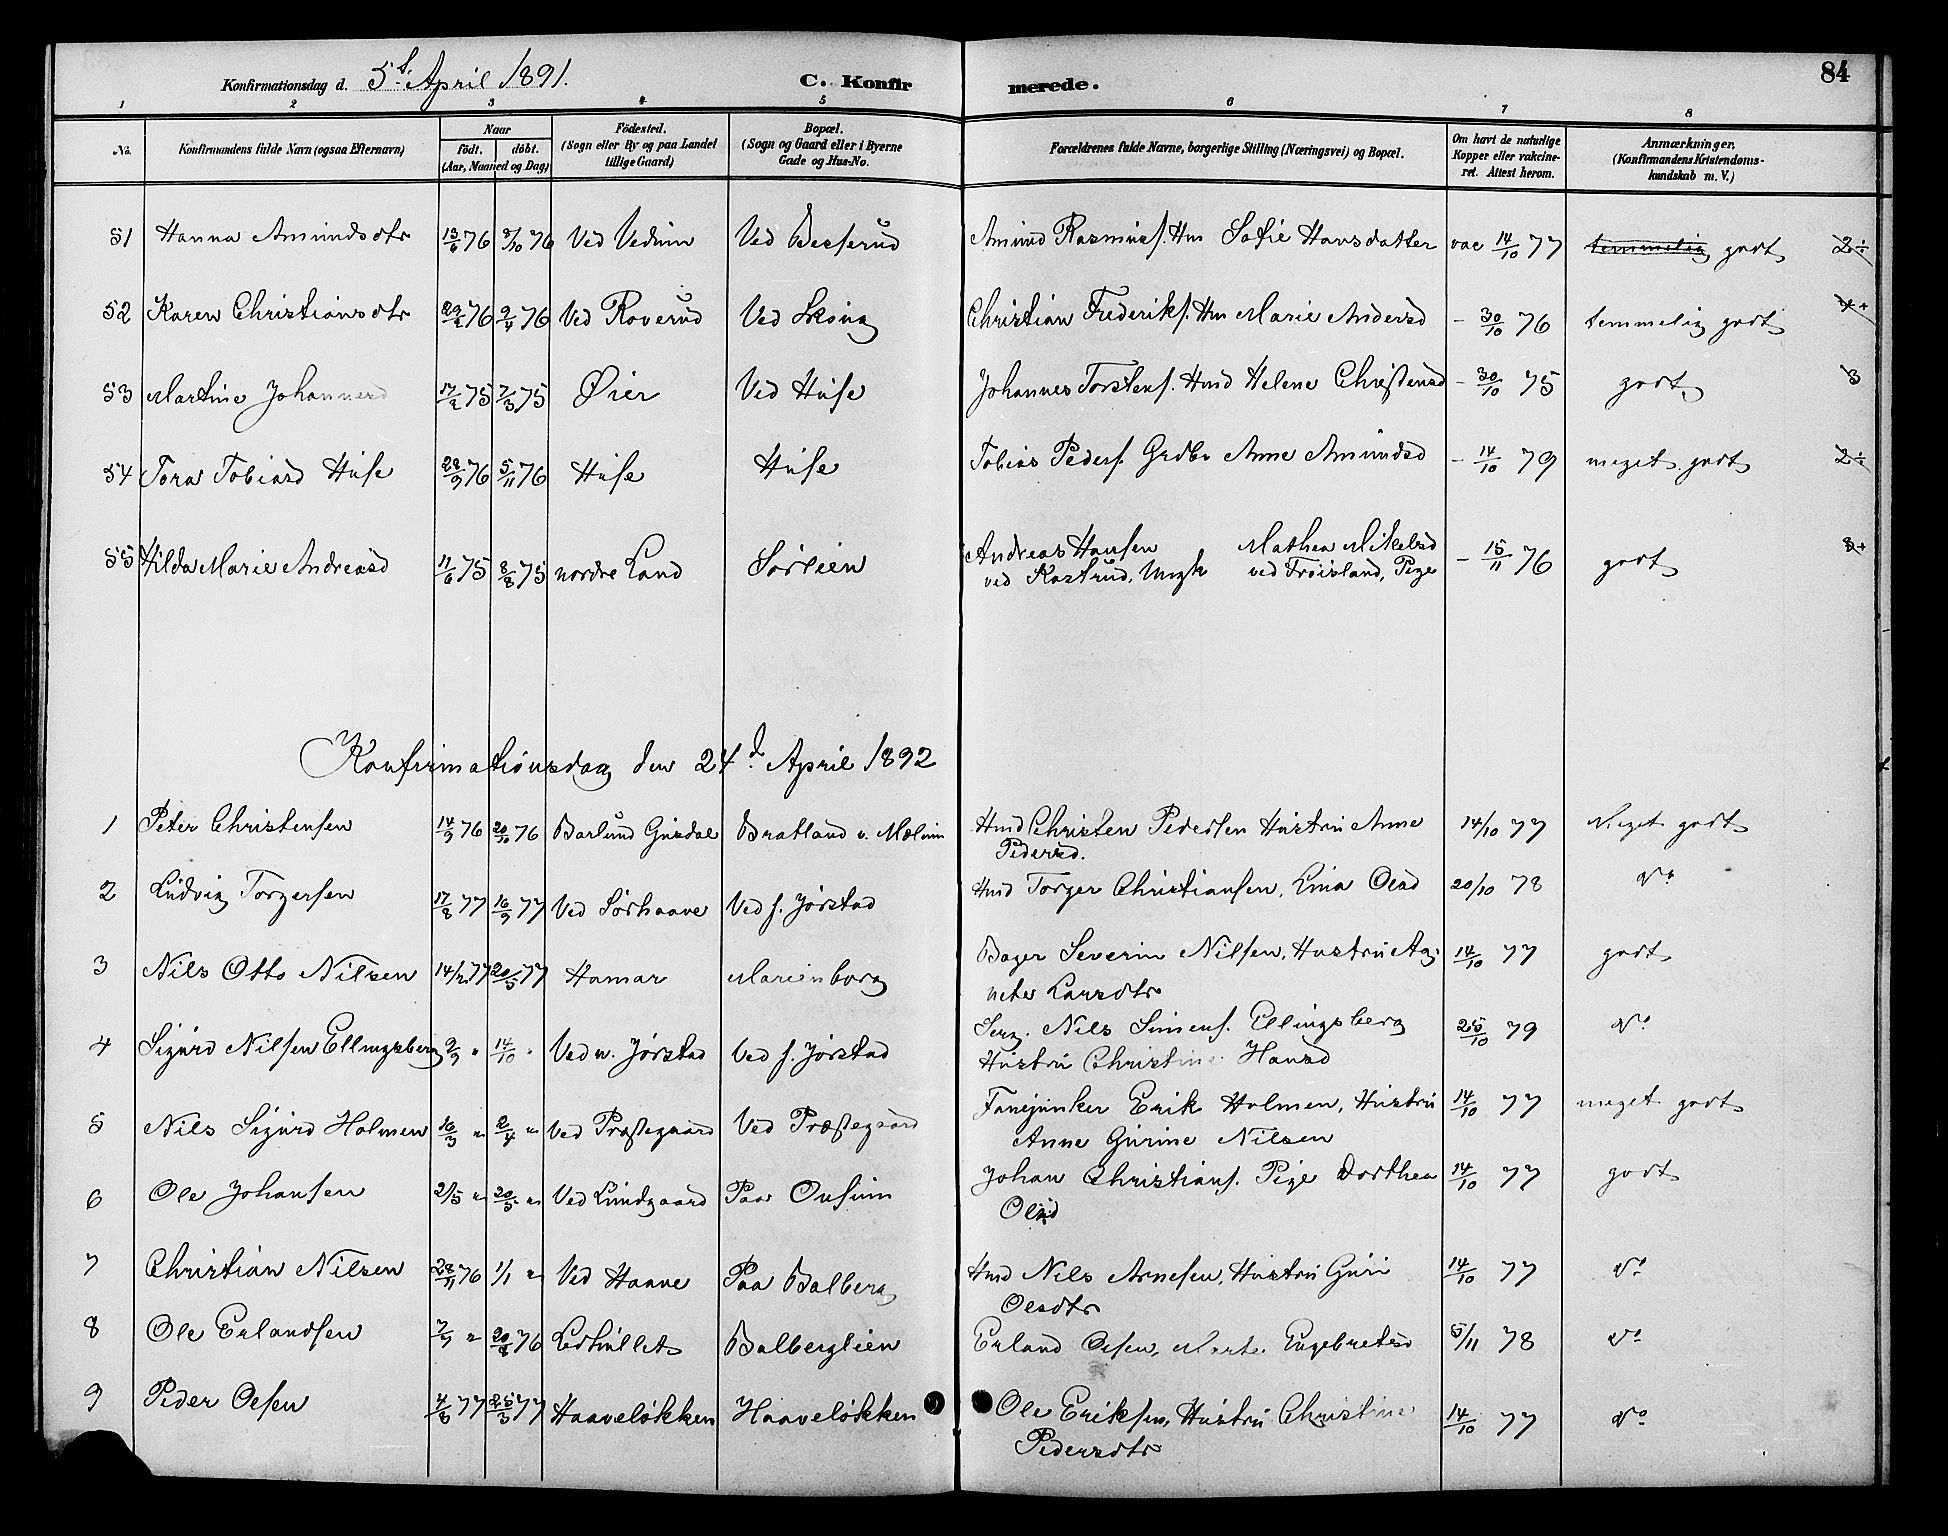 Konfirmationsdag d. 5t April 1891. C. Konfir merede. 84
1 2 3 4 5 6 7 8
No. Konfirmandens fulde Navn (ogsaa Efternavn) Naar født. døbt. (Aar, Maaned og Dag) Födested. (Sogn eller By og paa Landet tillige Gaard) Bopæl. (Sogn og Gaard eller i Byerne Gade og Hus-No. Forældrenes fulde Navne, borgerlige Stilling (Næringsvei) og Bopæl. Om havt de naturlige Kopper eller vakcineret. Attest herom. Anmærkninger. (Konfirmandens Kristendomskundskab m. V.)
51 Hanna Amundsdtr 13/6 76 8/10 76 Ved Vedum Ved Besserud Amund Rasmusf. Hm Sofie Hansdatter vac 14/10 77 temmelig godt 2÷
52 Karen Christiansdtr 29/2 76 9/4 76 Ved Roverud Ved Skong Christian Frederikf. Hm Marie Andersd - 30/10 76 temmelig godt 4+
53 Martine Johannesd 17/2 75 7/3 75 Øier Ved Huse Johannes Torstenf. Hmd Helene Christensd - 30/10 75 godt 3
54 Tora Tobiasd Huse 28/9 76 5/11 76 Huse Huse Tobias Pederf. Grdbr Anne Amundsd - 14/10 79 meget godt 2÷
55 Hilda Marie Andreasd 11/6 75 8/8 75 nordre Land Sørlien Andreas Hansen Mathea Mikelsd - 15/11 76 godt 3+
ved Kastrud, Ungk ved Frøisland, Pige
Konfirmationsdag den 24d April 1892
1 Peter Christensen 14/9 76 20/10 76 Barlund Gusdal Bratland v. Mælum Hmd Christen Pedersen Hustru Anne 14/10 77 Meget godt
Pedersd.
2 Ludvig Torgersen 17/8 77 16/9 77 Ved Sørhaave Ved s. Jørstad Hmd Torger Christiansen, Lina Olsd 20/10 78 do
3 Nils Otto Nilsen 14/2 77 20/5 77 Hamar Marienborg Bager Severin Nilsen, Hustru Ag- 14/10 77 godt
nete Larsdtr
4 Sigurd Nilsen Ellingsberg 9/9 " 14/10 " Ved n. Jørstad Ved s. Jørstad Serg. Nils Simenf. Ellingsberg 25/10 79 do
Hustru Christine Hansd
5 Nils Sigurd Holmen 16/3 " 2/4 " Ved Præstegaard Ved Præstegaard Fanejunker Erik Holmen, Hustru 14/10 77 meget godt
Anne Gurine Nilsen
6 Ole Johansen 2/5 " 20/5 " Ved Lundgaard Paa Onsum Johan Christianf. Pige Dorthea 14/10 77 godt
Olsd
7 Christian Nilsen 28/11 76 1/1 " Ved Haave Paa Balberg Hmd Nils Arnesen, Hustru Guri 14/10 77 do
Olsdtr
8 Ole Erlandsen 7/9 " 76 Balberglien Erland Olsen, Marte Engebretsd 5/11 78 do
9 Peder Olsen 4/3 77 25/3 77 Haaveløkken Haaveløkken Ole Eriksen, Hustru Christine 14/10 77 do
Pedersdtr